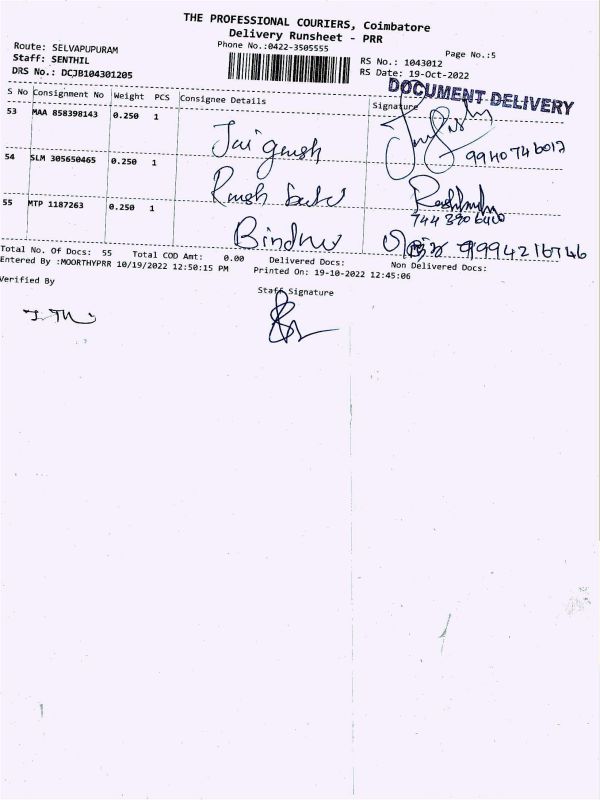 THE PROFESSIONAL COURIERS, Coimbatore
Delivery Runsheet - PRR
Route: SELVAPUPURAM
Phone No.:0422-3505555
Page No.:5
Staff: SENTHIL
RS No.: 1043012
DRS No.: DCJB104301205
RS Date: 19-Oct-2022
DOCUMENT DELIVERY
S No Consignment No Weight PCS Consignee Details Signature
53 MAA 858398143 0.250 1
Jai
9940746012
54 SLM 305650465 0.250 1
55 MTP 1187263 0.250 1
Bindhu 9994216746
Total No. Of Docs: 55 Total COD Amt: 0.00 Delivered Docs: Non Delivered Docs:
Entered By :MOORTHYPRR 10/19/2022 12:50:15 PM Printed On: 19-10-2022 12:45:06
Verified By
Staff Signature